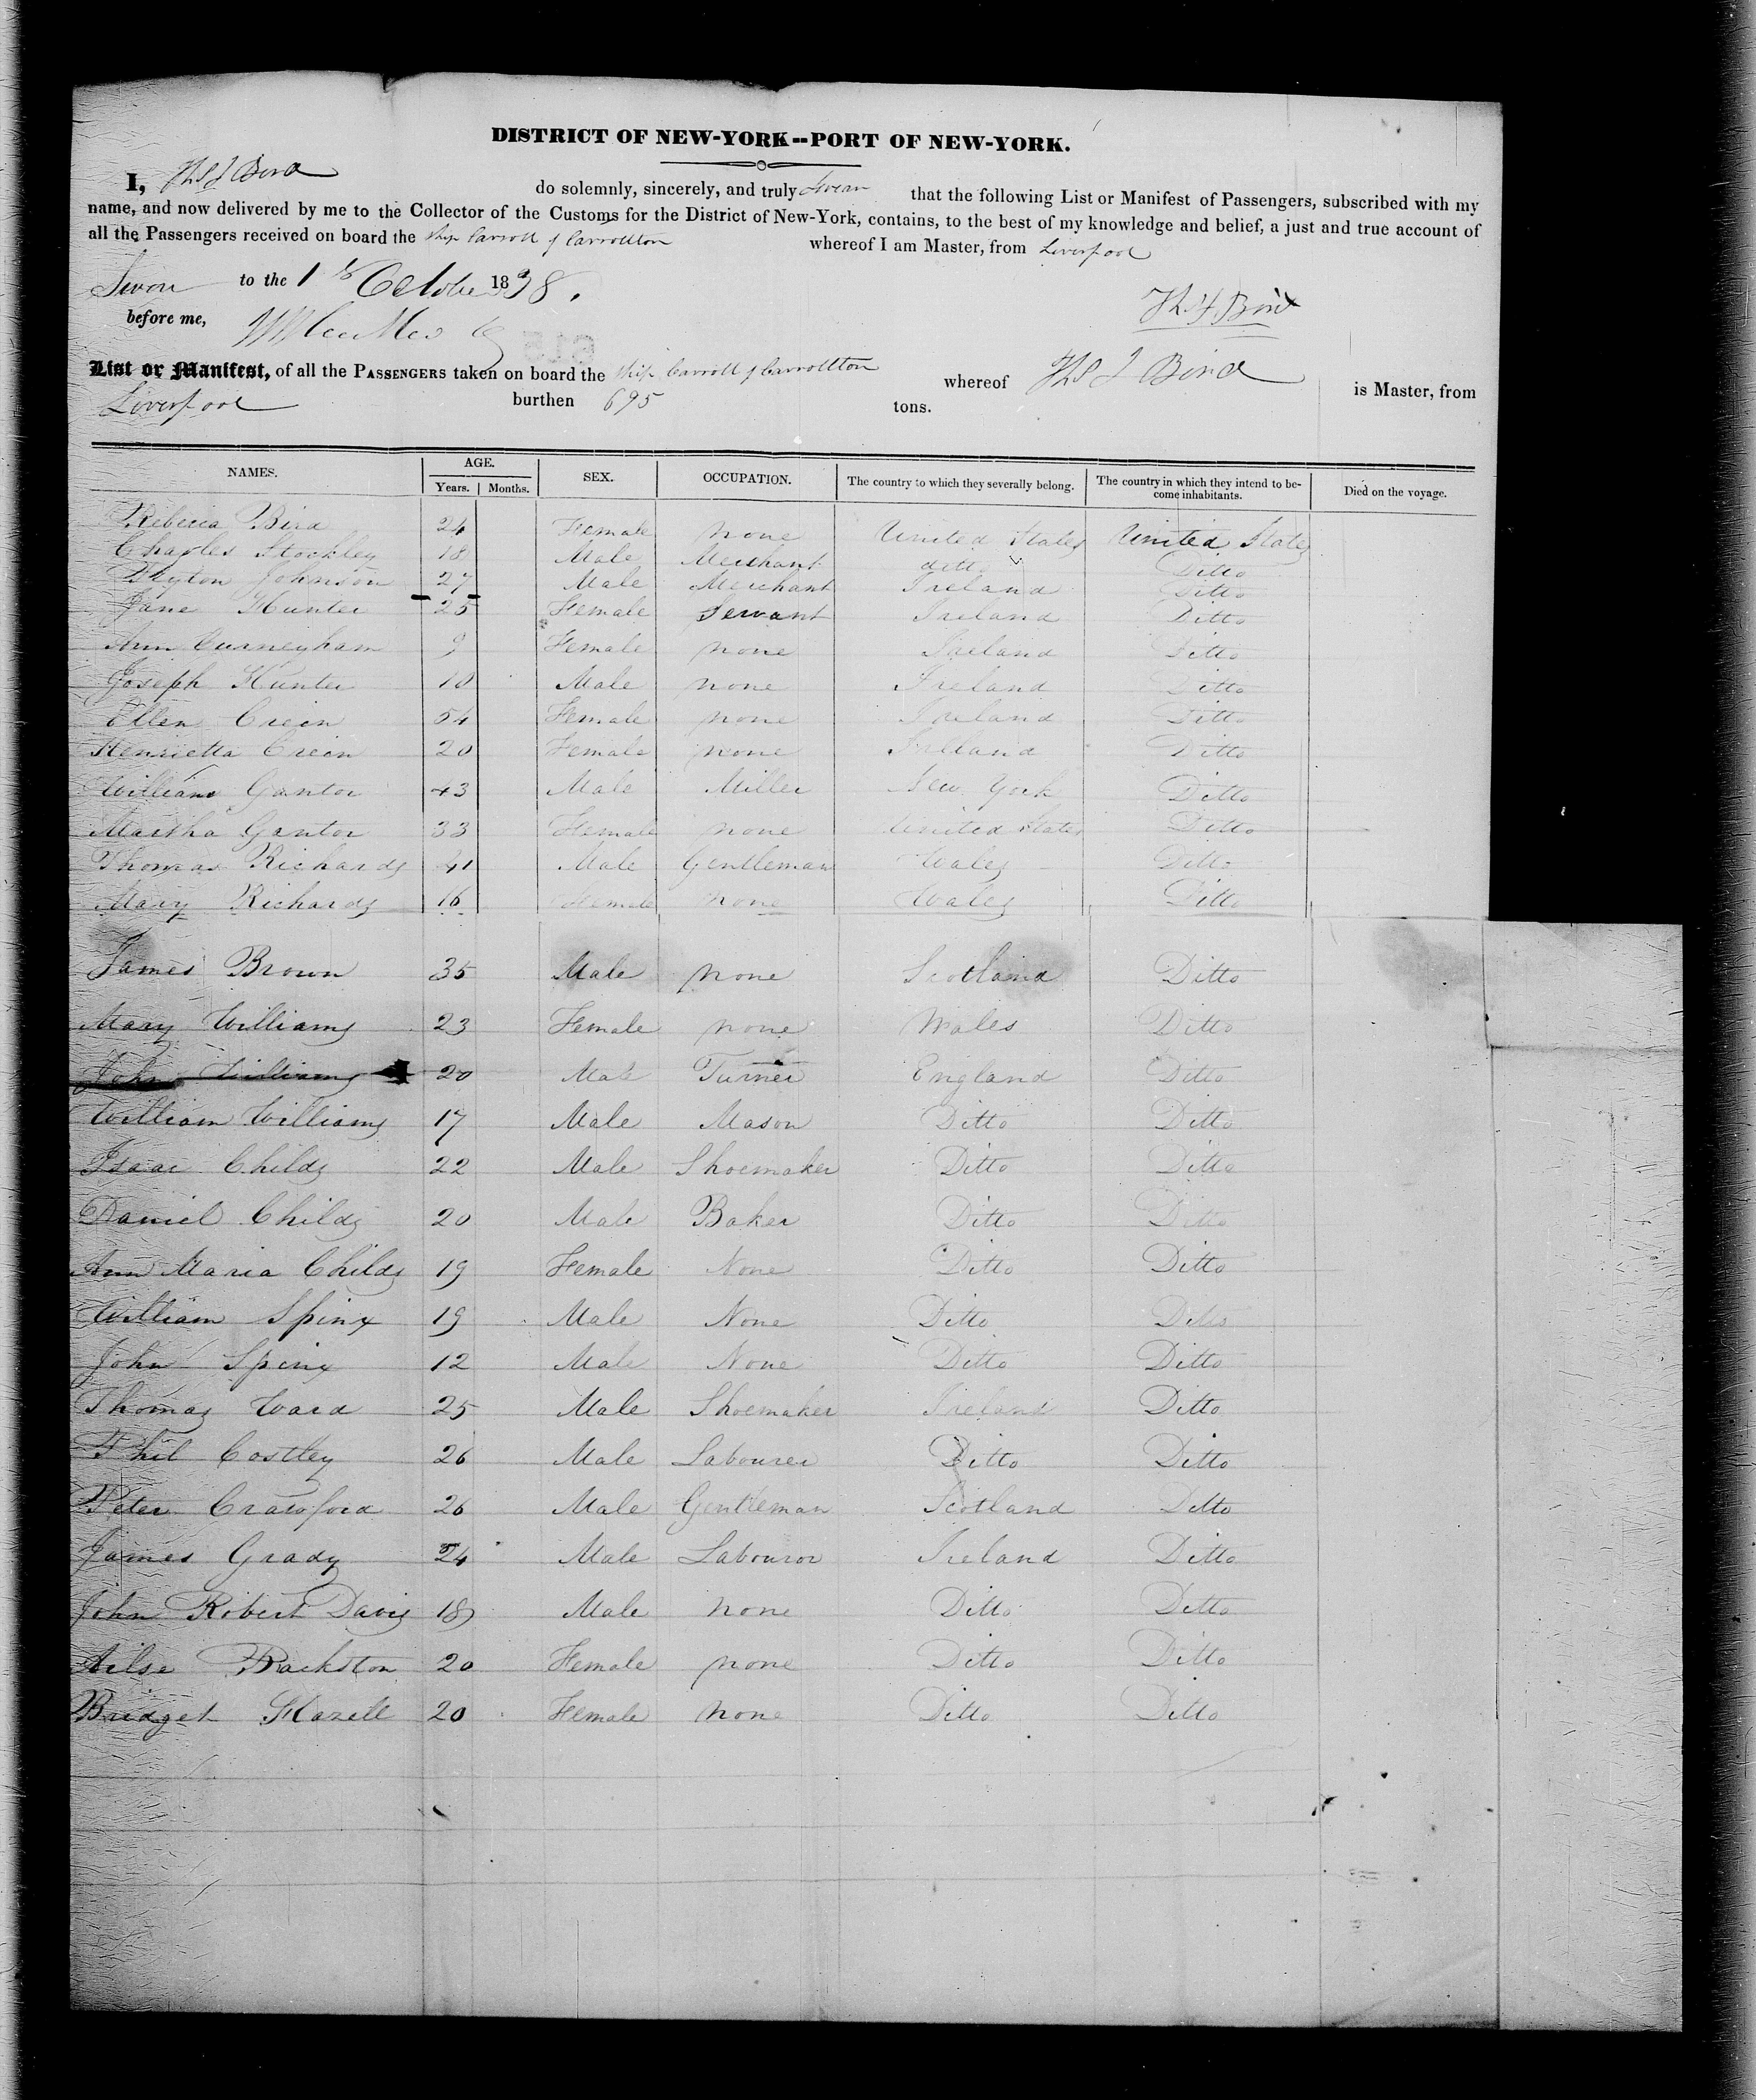 DISTRICT OF NEW-YORK--PORT OF NEW-YORK.
I, Ths J Bird do solemnly, sincerely, and truly Swear that the following List or Manifest of Passengers, subscribed with my
name, and now delivered by me to the Collector of the Customs for the District of New-York, contains, to the best of my knowledge and belief, a just and true account of
all the Passengers received on board the Ship Carroll of Carrollton whereof I am Master, from Liverpool
Sworn to the 1st October 1838.
Ths J Bird
before me,
List or Manifest, of all the PASSENGERS taken on board the Ship Carroll of Carrollton whereof Ths J Bird is Master, from
Liverpool burthen 695 tons.
NAMES. AGE. SEX. OCCUPATION. The country to which they severally belong. The country in which they intend to be-come inhabitants. Died on the voyage.
Years. Months.
Rebecca Bird 24 Female none United States United States
Charles Stockley 18 Male Merchant ditto Ditto
Johnson 27 Male Merchant Ireland Ditto
Jane Hunter 25 Female Servant Ireland Ditto
Ann Curneyham 9 Female none Ireland Ditto
Joseph Hunter 10 Male none Ireland Ditto
Ellen Crein 54 Female none Ireland Ditto
Henrietta Crein 20 Female none Ireland Ditto
William Gantor 43 Male Miller New York Ditto
Martha Gantor 33 Female none United States Ditto
Thomas Richards 41 Male Gentleman Wales Ditto
Mary Richards 16 Female none Wales Ditto
James Brown 35 Male none Scotland Ditto
Mary Williams 23 Female none Wales Ditto
John Williams 20 Male Turner England Ditto
William Williams 17 Male Mason Ditto Ditto
Isaac Childs 22 Male Shoemaker Ditto Ditto
Daniel Childs 20 Male Baker Ditto Ditto
Ann Maria Childs 19 Female None Ditto Ditto
William Spinx 19 Male None Ditto Ditto
John Spinx 12 Male None Ditto Ditto
Thomas Ward 25 Male Shoemaker Ireland Ditto
Phil Costley 26 Male Labourer Ditto Ditto
Peter Crawford 26 Male Gentleman Scotland Ditto
James Grady 24 Male Labouror Ireland Ditto
John Robert Davis 18 Male none Ditto Ditto
Ailse 20 Female none Ditto Ditto
Bridget Hazell 20 Female none Ditto Ditto